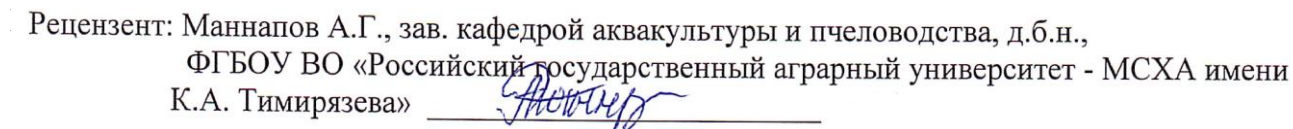 Рецензент: Маннапов А.Г., зав. кафедрой аквакультуры и пчеловодства, д.б.н.,
ФГБОУ ВО «Российский государственный аграрный университет - МСХА имени
К.А. Тимирязева»